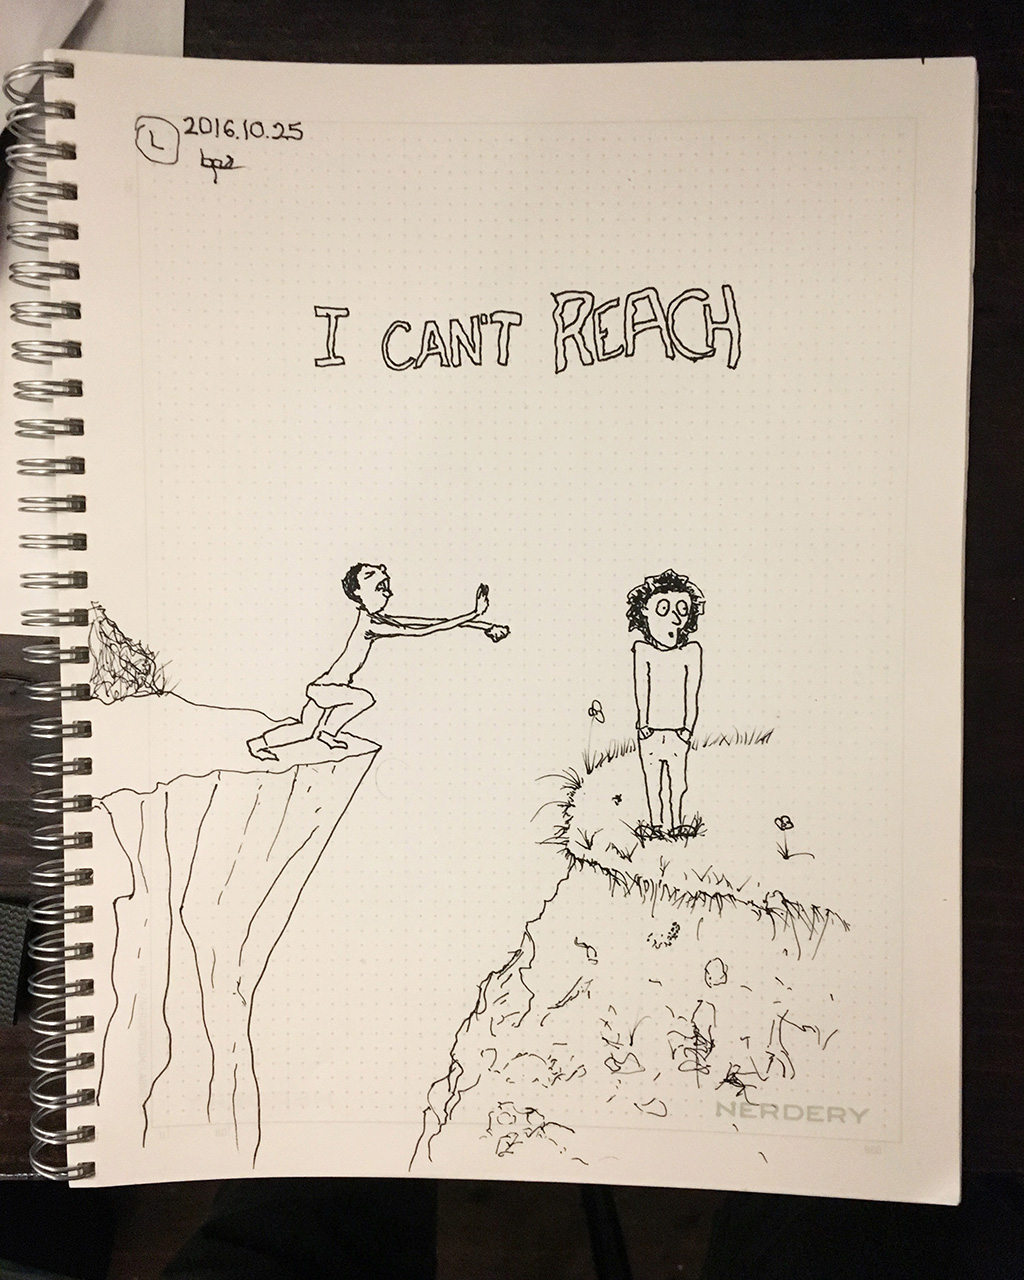 L 2016.10.25
I CAN'T REACH
NERDERY